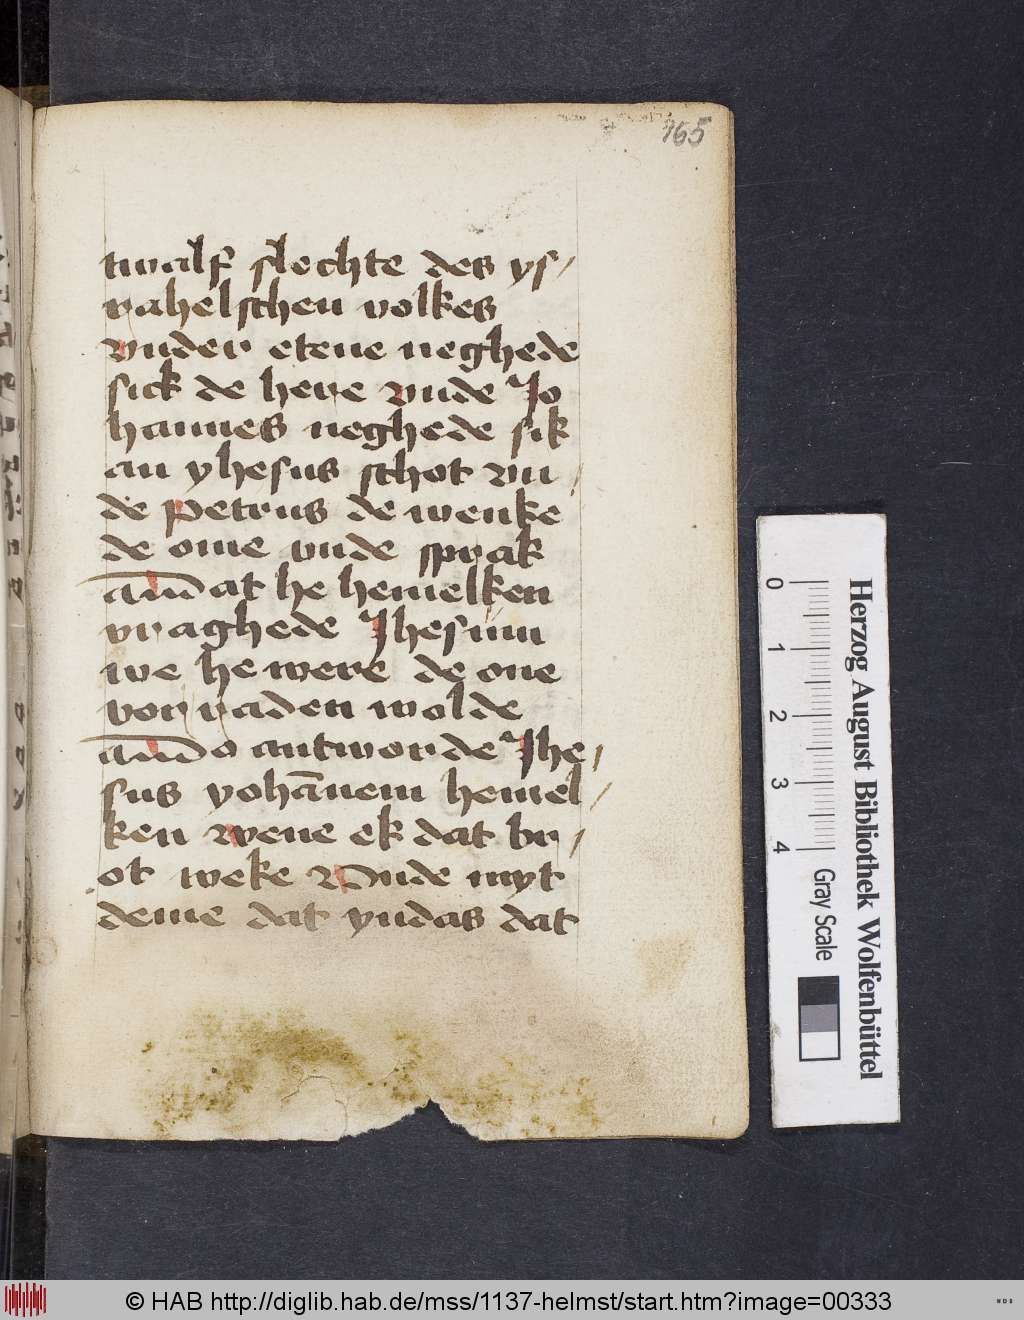 165
twalf slechte des ys/
rahelschen volkes
vnder etene neghede
sick de here vnde Jo
hannes neghede sik
an yhesus schot vn/
de Petrus de wenke
de ome vnde sprak
dat he hemelken
vraghede Jhesum
we he were de one
vorraden wolde
o antworde Jhe/
sus yohānem hemel/
ken wene ek dat br/
ot weke Vnde myt
deme dat yudas dat
Herzog August Bibliothek Wolfenbüttel
0 1 2 3 4
Gray Scale
© HAB http://diglib.hab.de/mss/1137-helmst/start.htm?image=00333